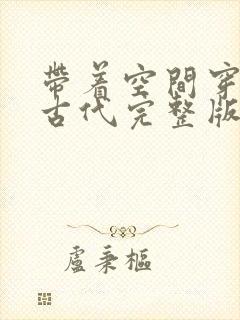 帶着空間穿
古代完整版
盧秉樞